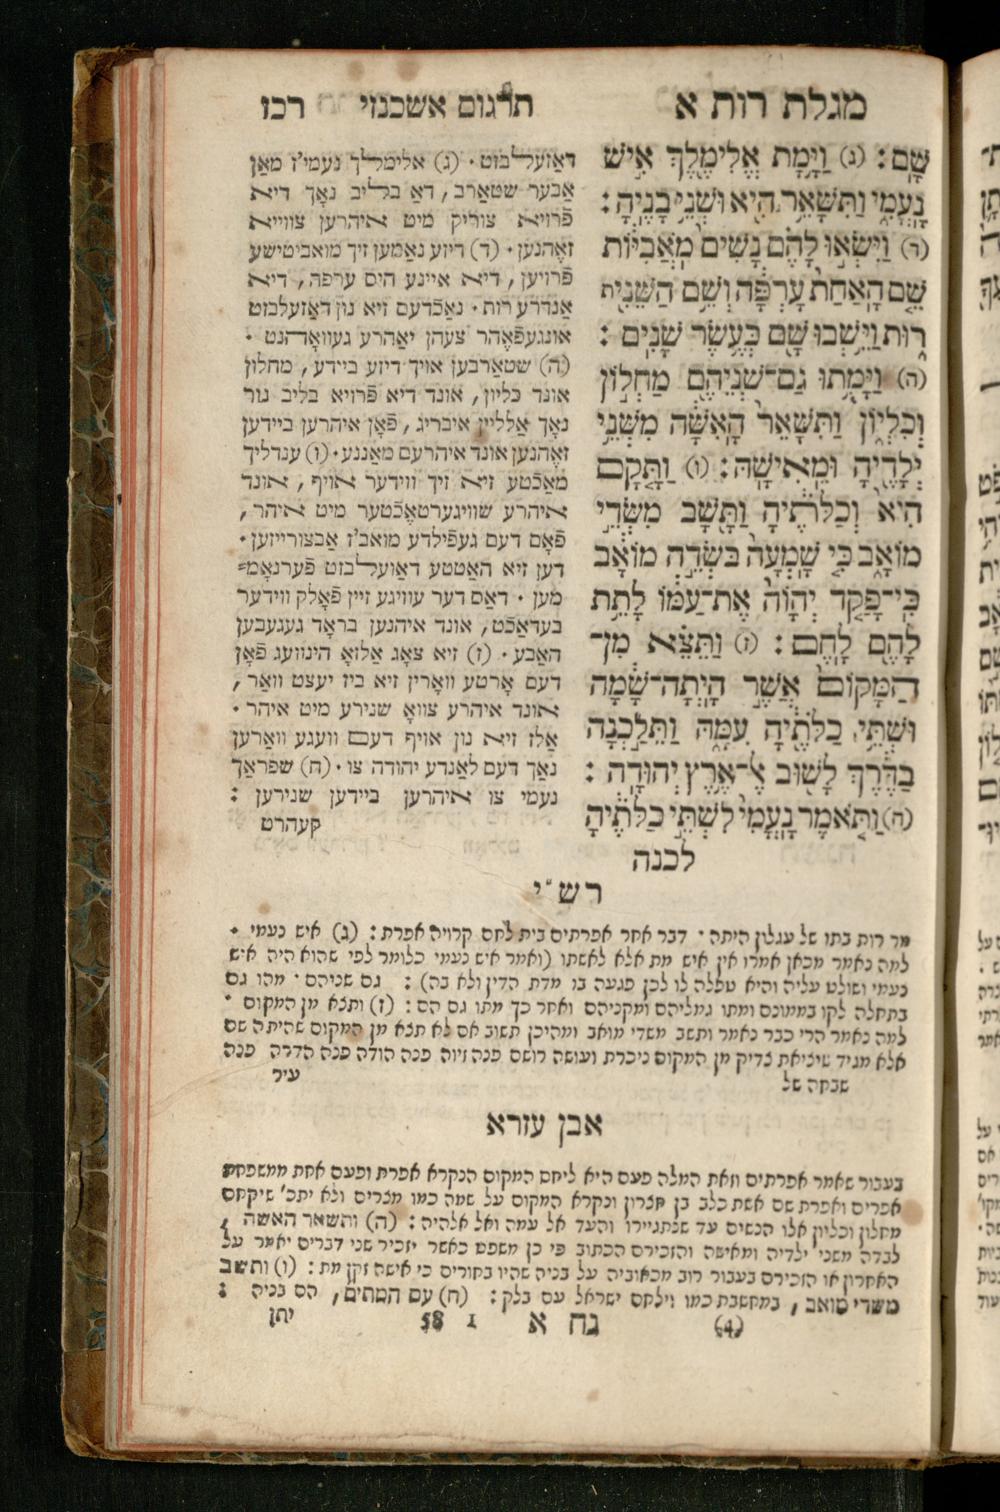 מגלת רות א
תרגום אשכנזי
רכז
שָׁם׃ (ג) וַיָּמָת אֱלִימֶלֶךְ אִישׁ
נָעֳמִי וַתִּשָּׁאֵר הִיא וּשְׁנֵי בָנֶיהָ׃
(ד) וַיִּשְׂאוּ לָהֶם נָשִׁים מֹאֲבִיּוֹת
שֵׁם הָאַחַת עָרְפָּה וְשֵׁם הַשֵּׁנִית
רוּת וַיֵּשְׁבוּ שָׁם כְּעֶשֶׂר שָׁנִים׃
(ה) וַיָּמֻתוּ גַם־שְׁנֵיהֶם מַחְלוֹן
וְכִלְיוֹן וַתִּשָּׁאֵר הָאִשָּׁה מִשְּׁנֵי
יְלָדֶיהָ וּמֵאִישָׁהּ׃ (ו) וַתָּקָם
הִיא וְכַלֹּתֶיהָ וַתָּשָׁב מִשְּׂדֵי
מוֹאָב כִּי שָׁמְעָה בִּשְׂדֵה מוֹאָב
כִּי־פָקַד יְהוָֹה אֶת־עַמּוֹ לָתֵת
לָהֶם לָחֶם׃ (ז) וַתֵּצֵא מִן־
הַמָּקוֹם אֲשֶׁר הָיְתָה־שָׁמָּה
וּשְׁתֵּי כַלֹּתֶיהָ עִמָּהּ וַתֵּלַכְנָה
בַדֶּרֶךְ לָשׁוּב אֶל־אֶרֶץ יְהוּדָה׃
(ח) וַתֹּאמֶר נָעֳמִי לִשְׁתֵּי כַלֹּתֶיהָ
לכנה
דאזעלבזט. (ג) אלימלך נעמי'ז מאן
אבער שטארב, דא בליב נאך דיא
פֿרויא צוריק מיט איהרען צווייא
זאֶהנען. (ד) דיזע נאהמען זיך מואביטישע
פֿרויען, דיא איינע היס ערפה, דיא
אנדרע רות. נאכֿדעם זיא נון דאזעלבזט
אונגעפֿאֶהר צעהן יאהרע געוואהנט.
(ה) שטארבען אויך דיזע ביידע, מחלון
אונד כליון, אונד דיא פֿרויא בליב נור
נאך אלליין איבריג, פֿאן איהרען ביידען
זאֶהנען אונד איהרעם מאננע. (ו) ענדליך
מאכֿטע זיא זיך ווידער אויף, אונד
איהרע שוויגערטאֶכֿטער מיט איהר,
פֿאם דעם געפֿילדע מואב'ז אבצורייזען.
דען זיא האטטע דאזעלבזט פֿערנאמ=
מען. דאס דער עוויגע זיין פֿאלק ווידער
בעדאכֿט, אונד איהנען בראד געגעבען
האבע. (ז) זיא צאג אלזא הינוועג פֿאן
דעם ארטע ווארין זיא ביז יעצט וואר,
אונד איהרע צווא שנירע מיט איהר.
אלז זיא נון אויף דעם וועגע ווארען
נאך דעם לאנדע יהודה צו. (ח) שפראך
נעמי צו איהרען ביידען שנירען:
קעהרט
רש"י
מר רות בתו של עגלון היתה. דבר אחר אפרתים בית לחם קרויה אפרת: (ג) איש נעמי.
למה נאמר מכאן אמרו אין איש מת אלא לאשתו (ואמר איש נעמי כלומר לפי שהוא היה איש
נעמי ושולט עליה והיא טפלה לו לכן פגעה בו מדת הדין ולא בה): גם שניהם. מהו גם
בתחלה לקו בממונם ומתו גמליהם ומקניהם ואחר כך מתו גם הם: (ז) ותצא מן המקום.
למה נאמר הרי כבר נאמר ותשב משדי מואב ומהיכן תשוב אם לא תצא מן המקום שהיתה שם
אלא מגיד שיציאת צדיק מן המקום ניכרת ועושה רושם פנה זיוה פנה הודה פנה הדרה פנה
שבחה של
עיר
אבן עזרא
בעבור שאמר אפרתים וזאת המלה פעם היא ליחס המקום הנקרא אפרת ופעם אחת ממשפחת
אפרים ואפרת שם אשת כלב בן חצרון ונקרא המקום על שמה כמו מצרים ולא יתכ' שיקחם
מחלון וכליון אלו הנשים עד שנתגיירו והעד אל עמה ואל אלהיה: (ה) ותשאר האשה,
לבדה משני ילדיה ומאישה והזכירם הכתוב פי כן משפט כאשר יזכיר שני דברים יאמר על
האחרון או הזכירם בעבור רוב מכאוביה על בניה שהיו בחורים כי אישה זקן מת: (ו) ותשב
משדי מואב, במחשבת כמו וילחם ישראל עם בלק: (ח) עם המתים, הם בניה:
(4) גח א 1 58 יתן